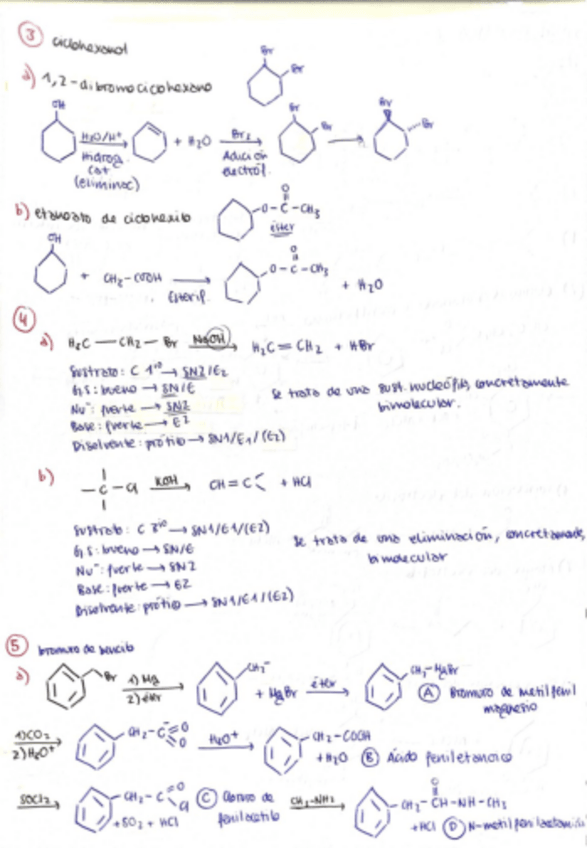 ③ ciclohexanol
a) 1,2-dibromociclohexano
Br
Br
OH
H2O/H+
Hidrog. Cat
(eliminac)
+ H2O
Br2
Adición electróf.
Br
Br
Br
Br
b) etanoato de ciclohexilo
O-C-CH3
O
éster
OH
+ CH3-COOH
Esterif.
O-C-CH3
O
+ H2O
④
a) H3C — CH2 — Br NaOH H2C = CH2 + HBr
Sustrato: C 1rio → SN2/E2
G.S: bueno → SN/E
Nu-: fuerte → SN2
Base: fuerte → E2
Disolvente: prótico → SN1/E1/(E2)
Se trata de una sust. nucleófila, concretamente
bimolecular.
b) -C-Cl KOH CH=C< + HCl
Sustrato: C 3rio → SN1/E1/(E2)
G.S: bueno → SN/E
Nu-: fuerte → SN2
Base: fuerte → E2
Disolvente: prótico → SN1/E1/(E2)
Se trata de una eliminación, concretamente
bimolecular
⑤ bromuro de bencilo
a) Br 1) Mg
2) éter
CH2-
+ MgBr
éter
CH2-MgBr
Ⓐ Bromuro de metilfenil
magnesio
1) CO2
2) H3O+
CH2-C
O
O
H3O+
CH2-COOH
+H2O Ⓑ Ácido feniletanoico
SOCl2
CH2-C
O
Cl
+SO2 + HCl
Ⓒ Cloruro de
fenilacetilo
CH3-NH2
CH2-CH-NH-CH3
O
+HCl Ⓓ